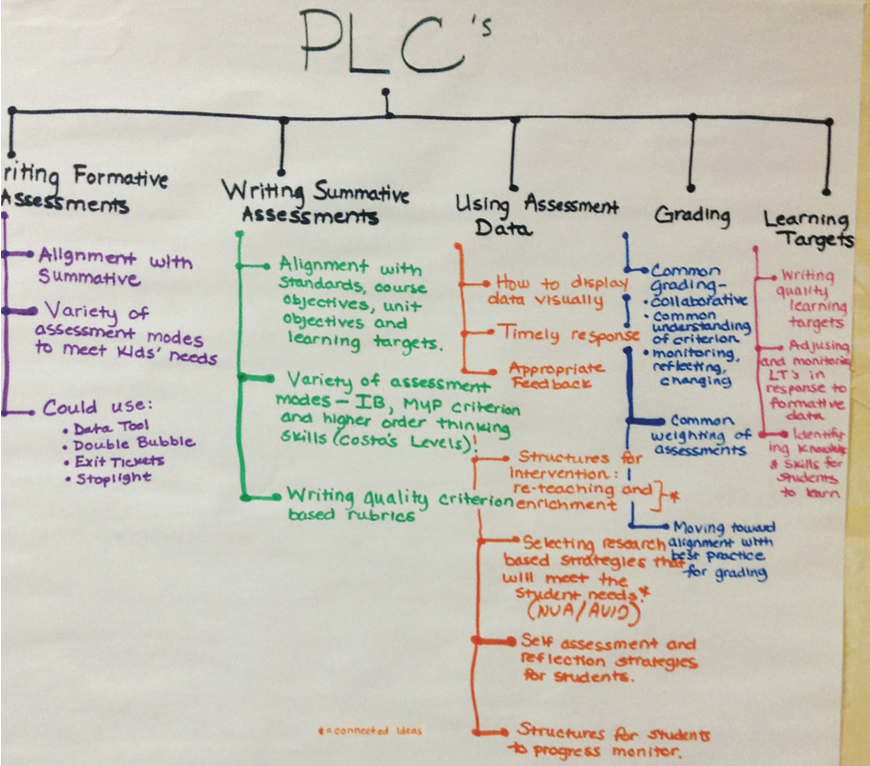 PLC's
riting Formative
Assessments
Alignment with
Summative
Variety of
assessment modes
to meet kids' needs
Could use:
• Data Tool
• Double Bubble
• Exit Tickets
• Stoplight
Writing Summative
Assessments
Alignment with
standards, course
objectives, unit
objectives and
learning targets.
Variety of assessment
modes - IB, MYP criterion
and higher order thinking
skills (Costa's Levels)!
Writing quality criterion
based rubrics
Using Assessment
Data
How to display
data visually
Timely response
Appropriate
Feedback
Structures for
intervention:
re-teaching and
enrichment }*
Selecting research
based strategies that
will meet the
student needs.*
(NUA/AVID)
Self assessment and
reflection strategies
for students.
Structures for students
to progress monitor.
*=connected ideas
Grading
Common
grading-
• collaborative
• common
understanding
of criterion
• monitoring,
reflecting,
changing
Common
weighting of
assessments
Moving toward
alignment with
best practice
for grading
Learning
Targets
Writing
quality
learning
targets
Adjusing
and monitoring
LT's in
response to
formative
data
Identify
ing knowledge
& skills for
students
to learn